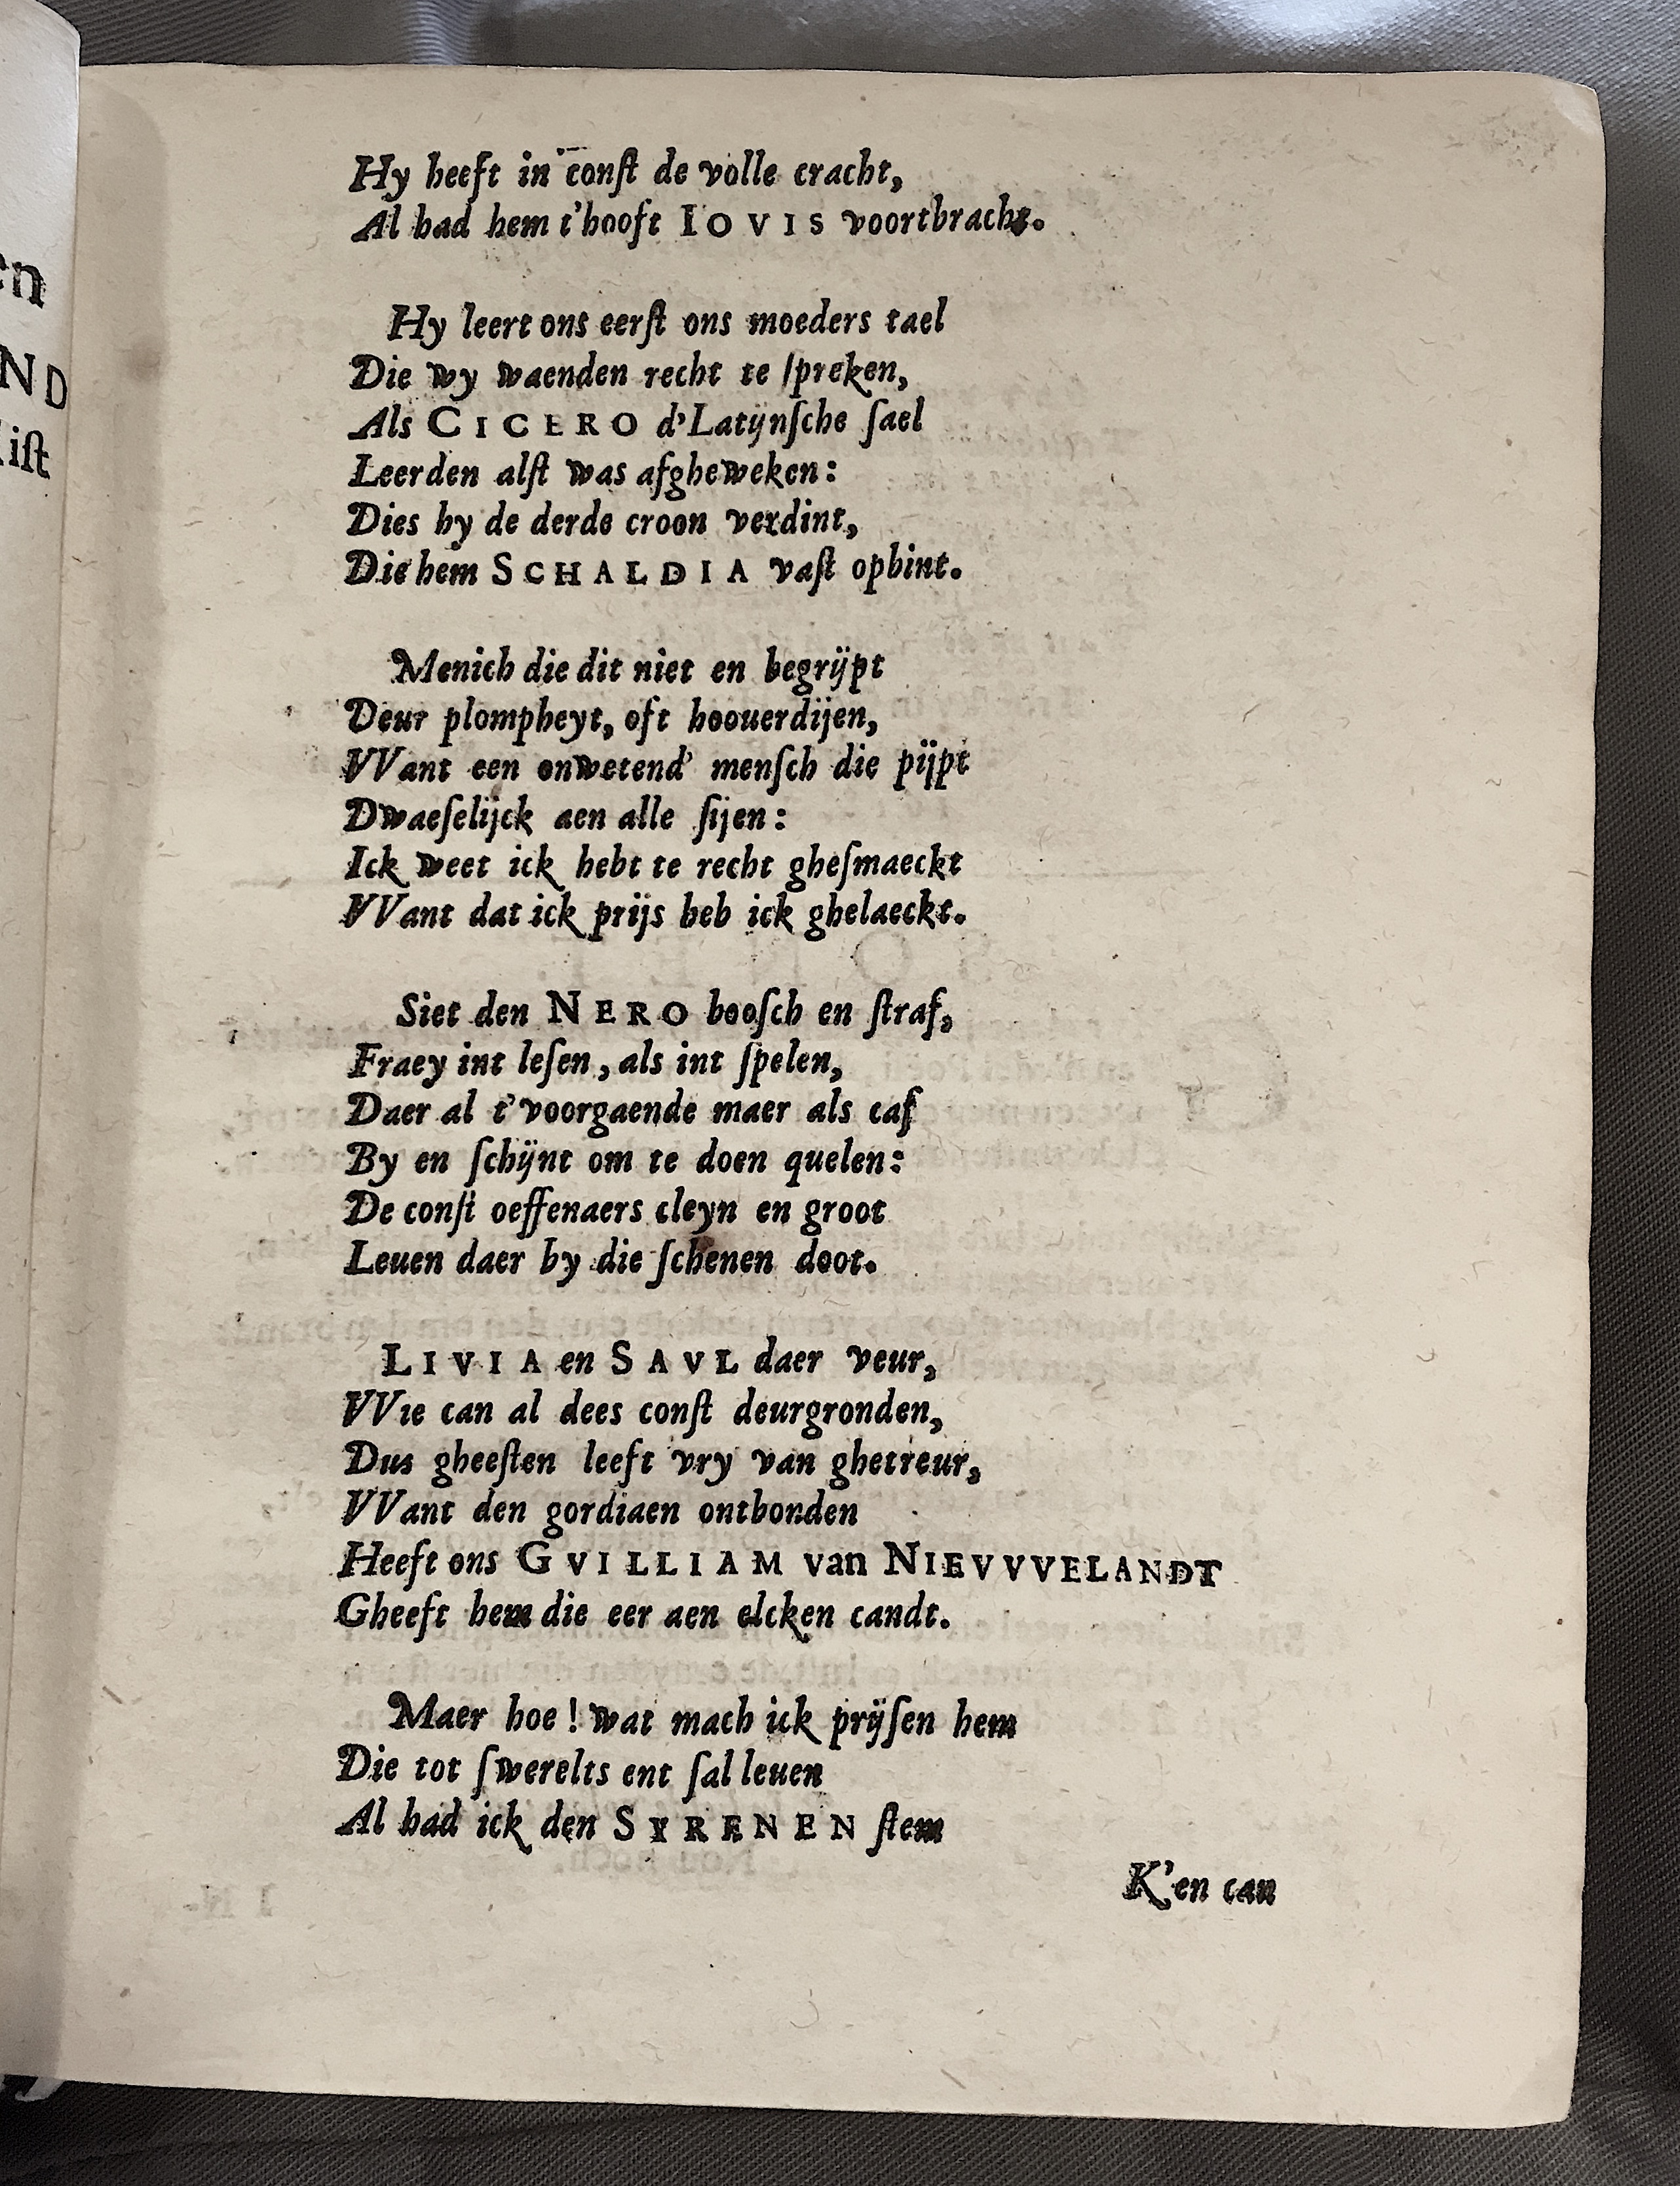 en
ND
iſt
Hy heeft in conſt de volle cracht,
Al had hem t'hooft IOVIS voortbracht.
Hy leert ons eerſt ons moeders tael
Die wy waenden recht te ſpreken,
Als CICERO d'Latijnſche ſael
Leerden alſt was afgheweken:
Dies hy de derde croon verdint,
Die hem SCHALDIA vaſt opbint.
Menich die dit niet en begrijpt
Deur plompheyt, oft hoouerdijen,
VVant een onwetend' menſch die pijpt
Dwaeſelijck aen alle ſijen:
Ick weet ick hebt te recht gheſmaeckt
VVant dat ick prijs heb ick ghelaeckt.
Siet den NERO booſch en ſtraf,
Fraey int leſen, als int ſpelen,
Daer al t'voorgaende maer als caf
By en ſchijnt om te doen quelen:
De conſt oeffenaers cleyn en groot
Leuen daer by die ſchenen doot.
LIVIA en SAVL daer veur,
VVie can al dees conſt deurgronden,
Dus gheeſten leeft vry van ghetreur,
VVant den gordiaen ontbonden
Heeft ons GVILLIAM van NIEVVVELANDT
Gheeft hem die eer aen elcken candt.
Maer hoe! wat mach ick prijſen hem
Die tot ſwerelts ent ſal leuen
Al had ick den SYRENEN ſtem
K'en can